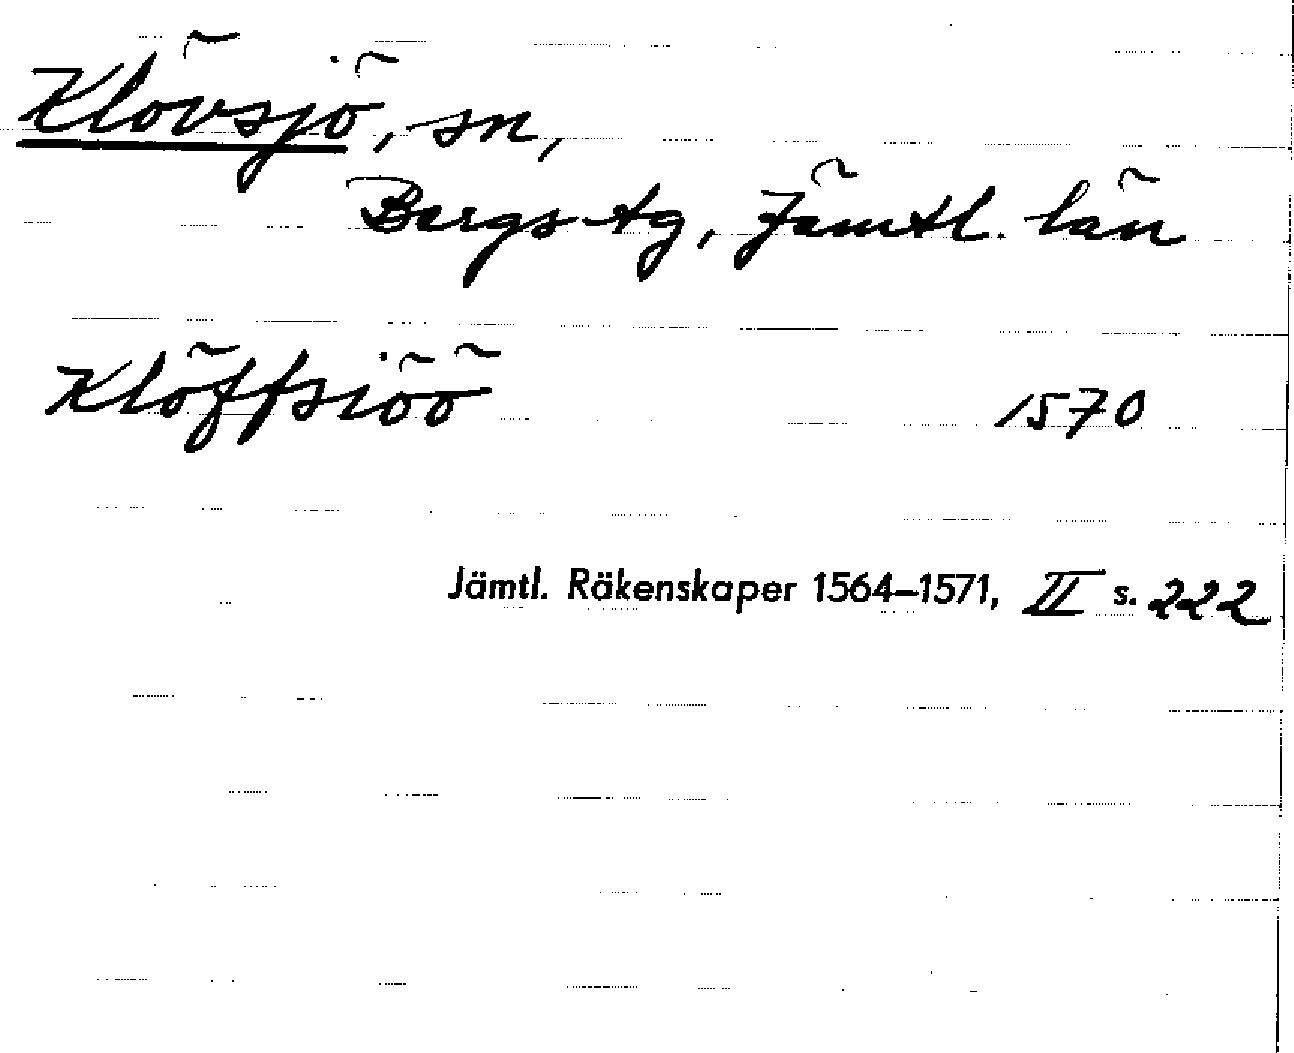 Klövsjö, sn,
Bergs tg, Jämtl. län
Klöffsiöö 1570
Jämtl. Räkenskaper 1564–1571, II s. 222